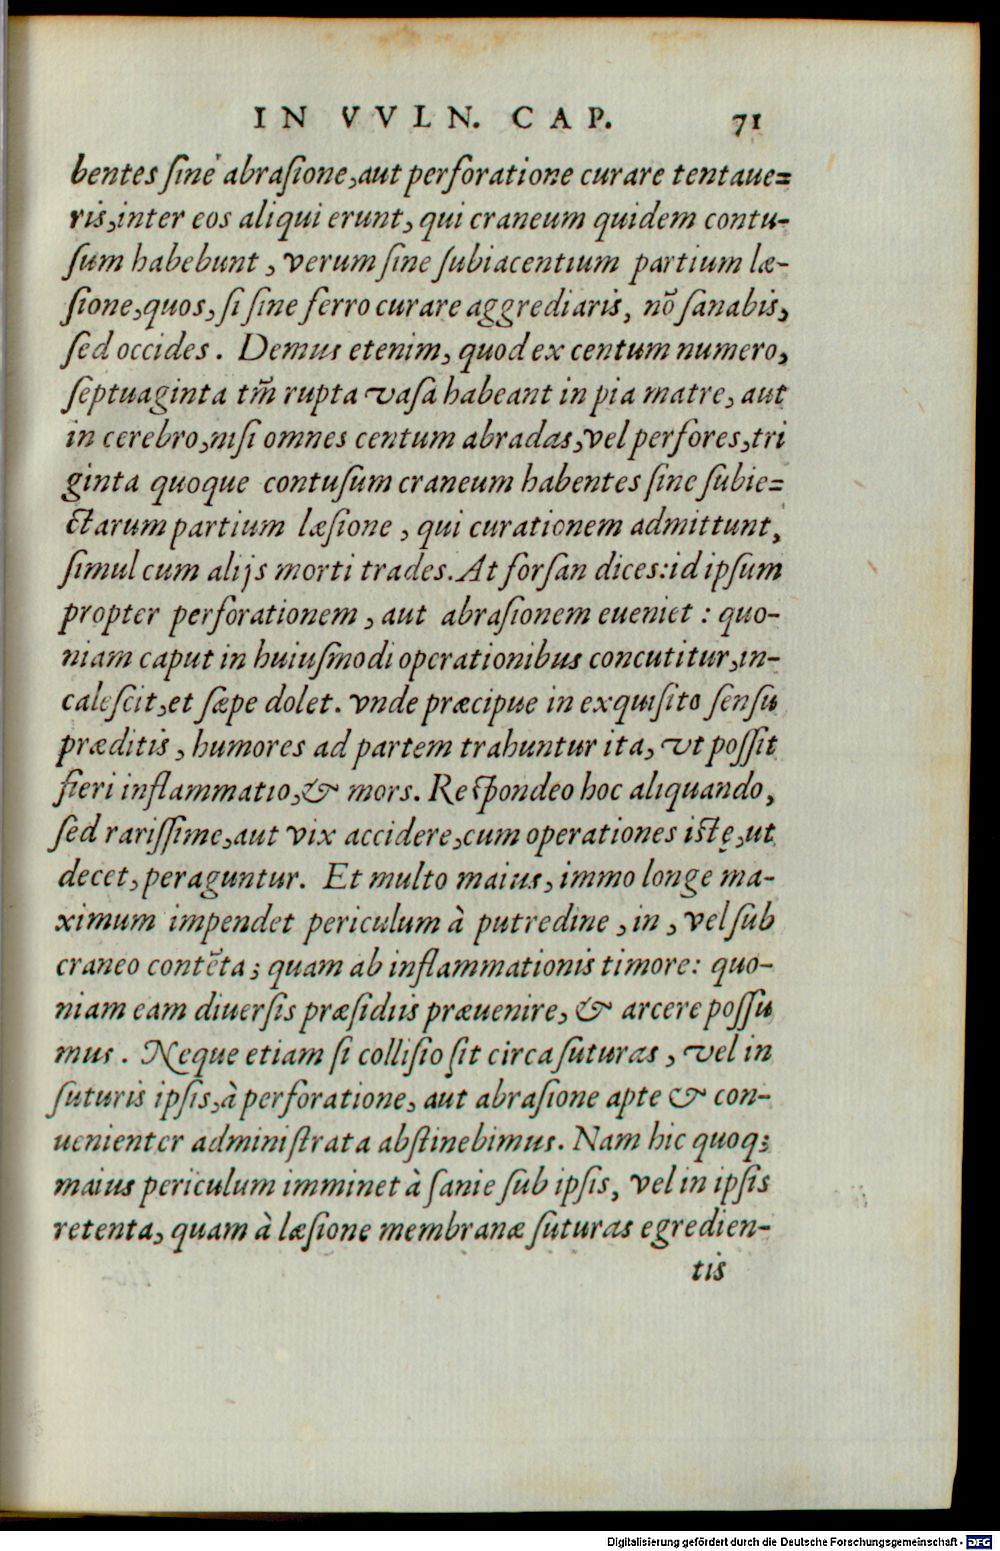 IN VVLN. CAP. 71
bentes sine abrasione, aut perforatione curare tentaue=
ris, inter eos aliqui erunt, qui craneum quidem contu-
sum habebunt, verum sine subiacentium partium læ-
sione, quos, si sine ferro curare aggrediaris, nō sanabis,
sed occides. Demus etenim, quod ex centum numero,
septuaginta tm̄ rupta vasa habeant in pia matre, aut
in cerebro, nisi omnes centum abradas, vel perfores, tri
ginta quoque contusum craneum habentes sine subie=
ctarum partium læsione, qui curationem admittunt,
simul cum alijs morti trades. At forsan dices: id ipsum
propter perforationem, aut abrasionem eueniet: quo-
niam caput in huiusmodi operationibus concutitur, in-
calescit, et sæpe dolet. vnde præcipue in exquisito sensu
præditis, humores ad partem trahuntur ita, vt possit
fieri inflammatio, & mors. Respondeo hoc aliquando,
sed rarissime, aut vix accidere, cum operationes istę, ut
decet, peraguntur. Et multo maius, immo longe ma-
ximum impendet periculum à putredine, in, vel sub
craneo contēta; quam ab inflammationis timore: quo-
niam eam diuersis præsidiis præuenire, & arcere possu
mus. Neque etiam si collisio sit circa suturas, vel in
suturis ipsis, à perforatione, aut abrasione apte & con-
uenienter administrata abstinebimus. Nam hic quoq;
maius periculum imminet à sanie sub ipsis, vel in ipsis
retenta, quam à læsione membranæ suturas egredien-
tis
Digitalisierung gefördert durch die Deutsche Forschungsgemeinschaft - DFG